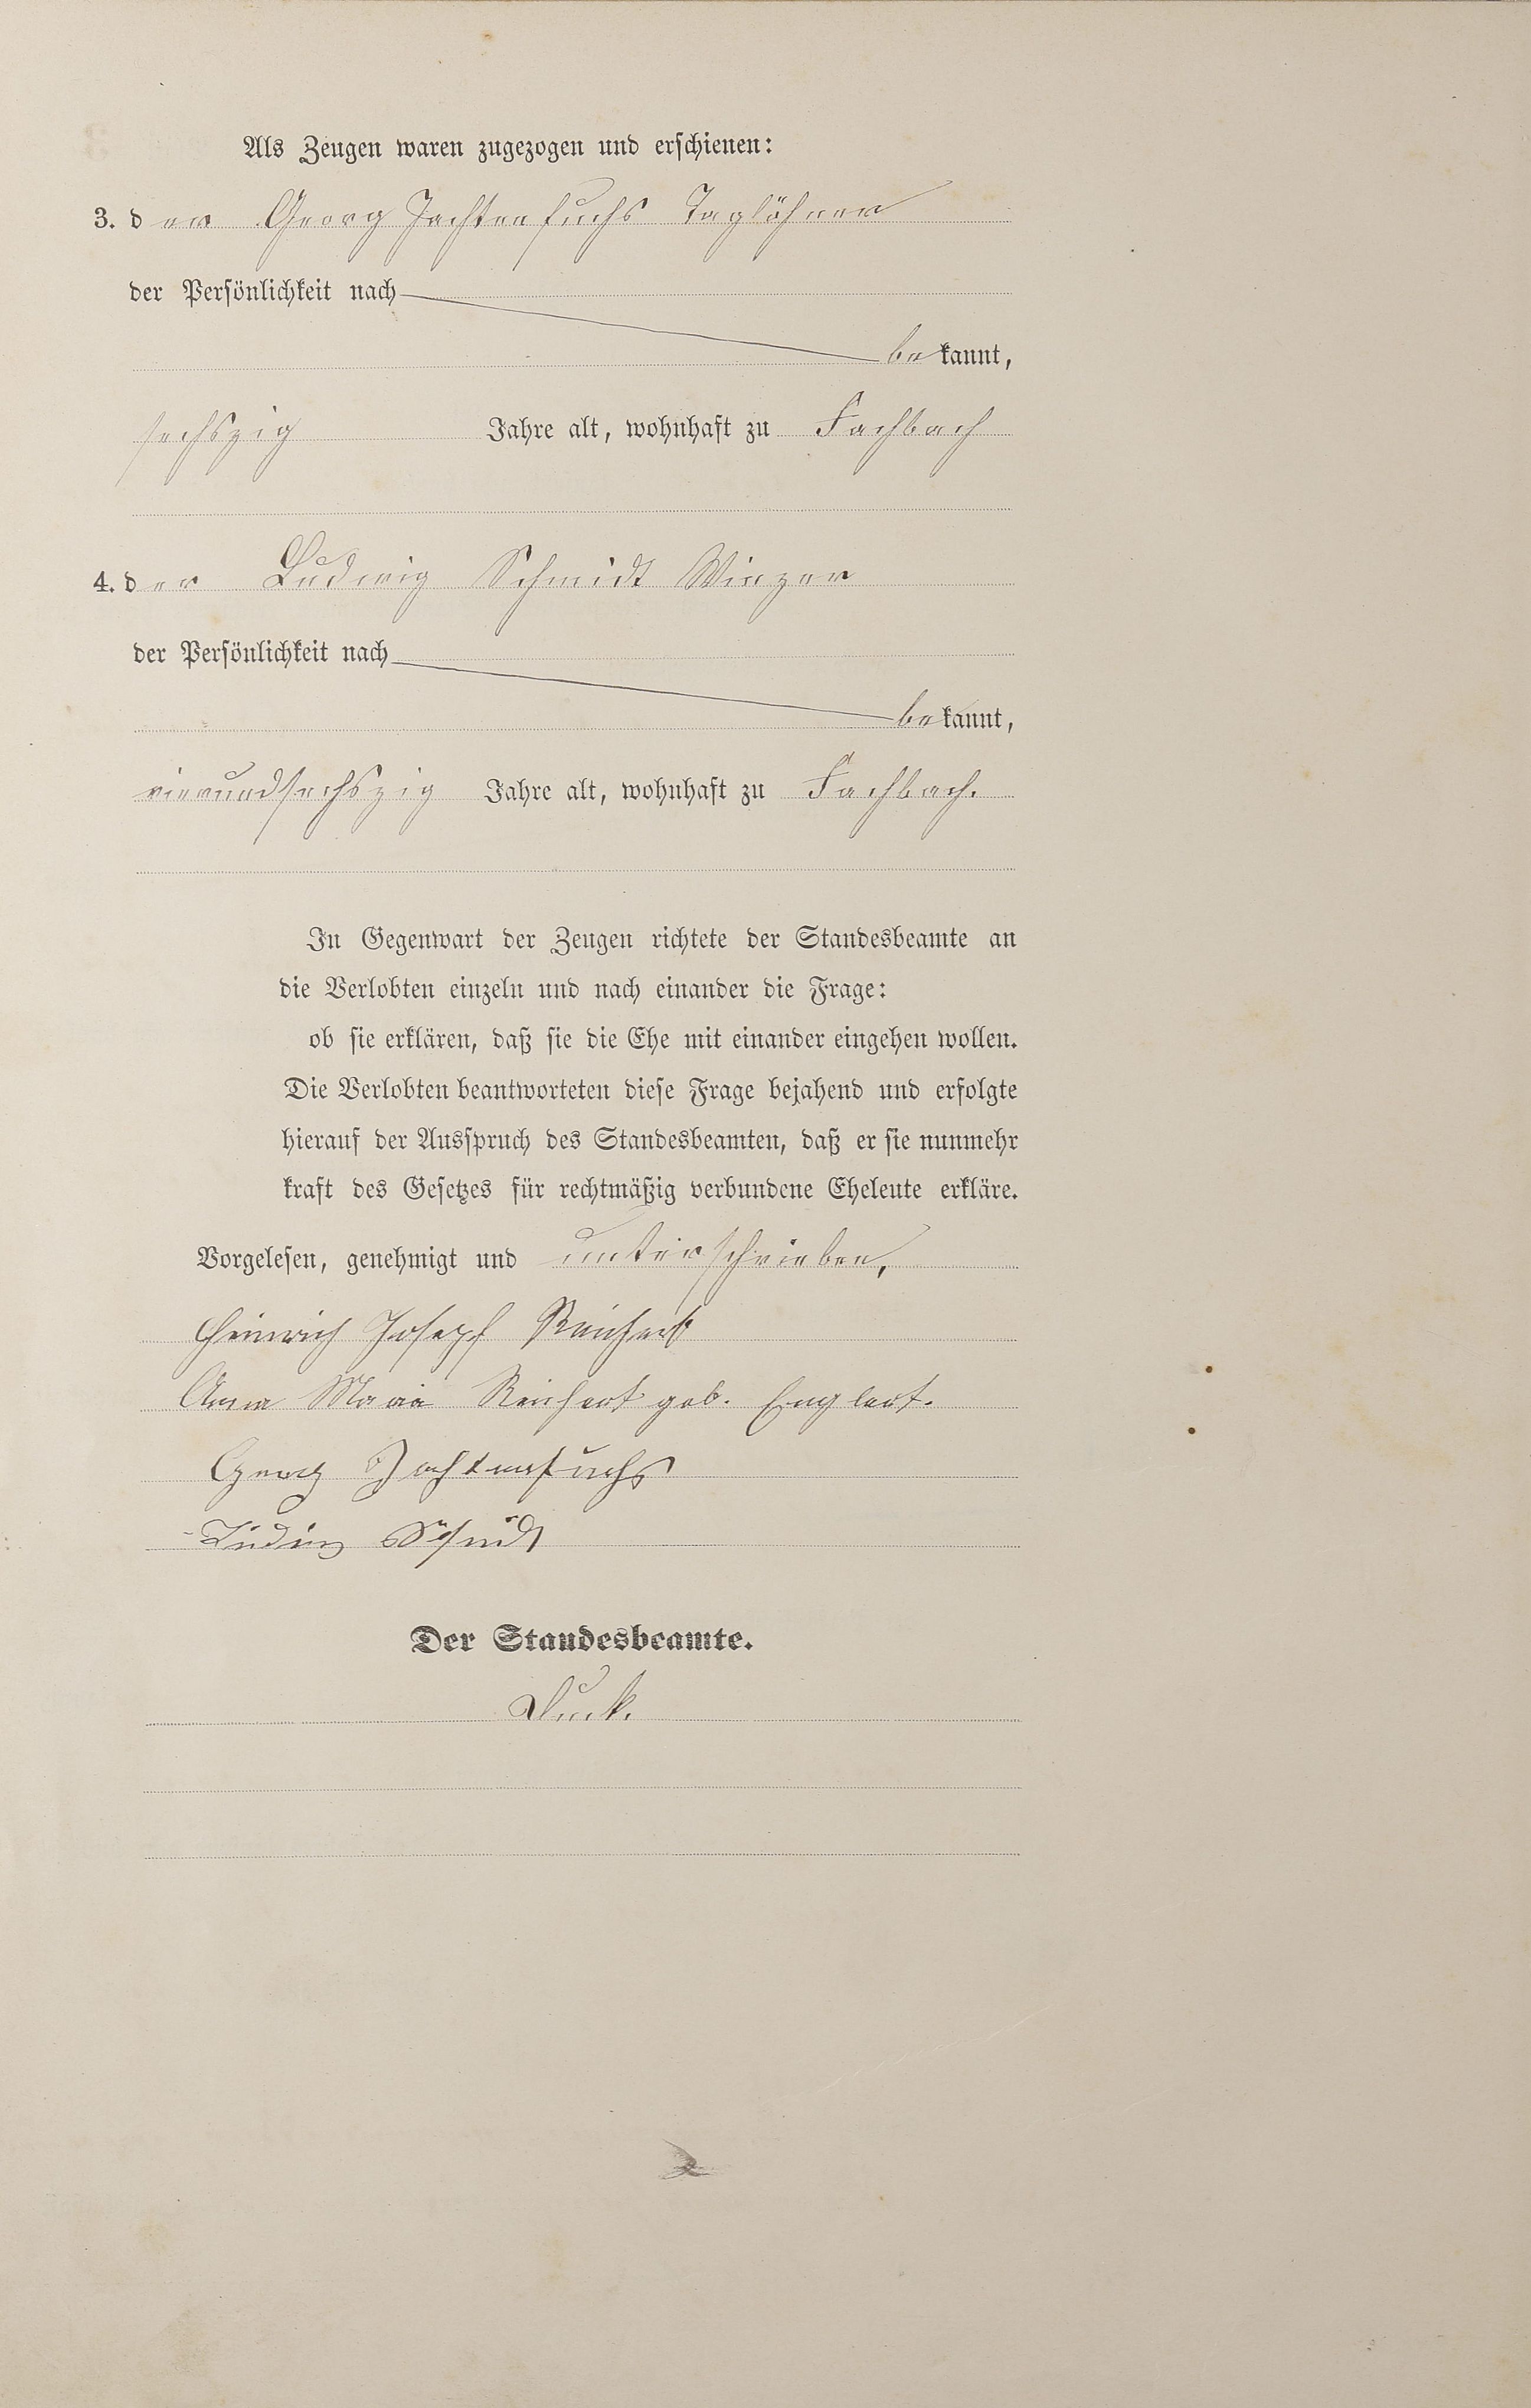 Als Zeugen waren zugezogen und erschienen:
3. der Georg Jachtenfuchs Taglöhner
der Persönlichkeit nach
bekannt,
sechszig Jahre alt, wohnhaft zu Fachbach
4. der Ludwig Schmidt Winzer
der Persönlichkeit nach
bekannt,
vierundsechszig Jahre alt, wohnhaft zu Fachbach.
In Gegenwart der Zeugen richtete der Standesbeamte an
die Verlobten einzeln und nach einander die Frage:
ob sie erklären, daß sie die Ehe mit einander eingehen wollen.
Die Verlobten beantworteten diese Frage bejahend und erfolgte
hierauf der Ausspruch des Standesbeamten, daß er sie nunmehr
kraft des Gesetzes für rechtmäßig verbundene Eheleute erkläre.
Vorgelesen, genehmigt und unterschrieben,
Heinrich Joseph Reichert
Anna Maria Reichert geb. Englert.
Georg Jachtenfuchs
Ludwig Schmidt
Der Standesbeamte.
Duck.